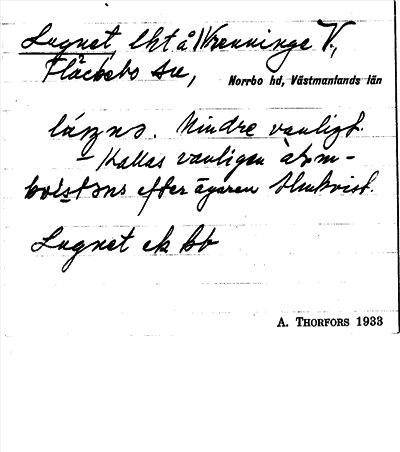 Lugnet, lht å Krenninge V.,
Fläckebo sn,
Norrbo hd, Västmanlands län
Mindre vanligt.
– Kallas vanligen
efter ägaren Almkvist.
Lugnet ek kb
A. THORFORS 1933